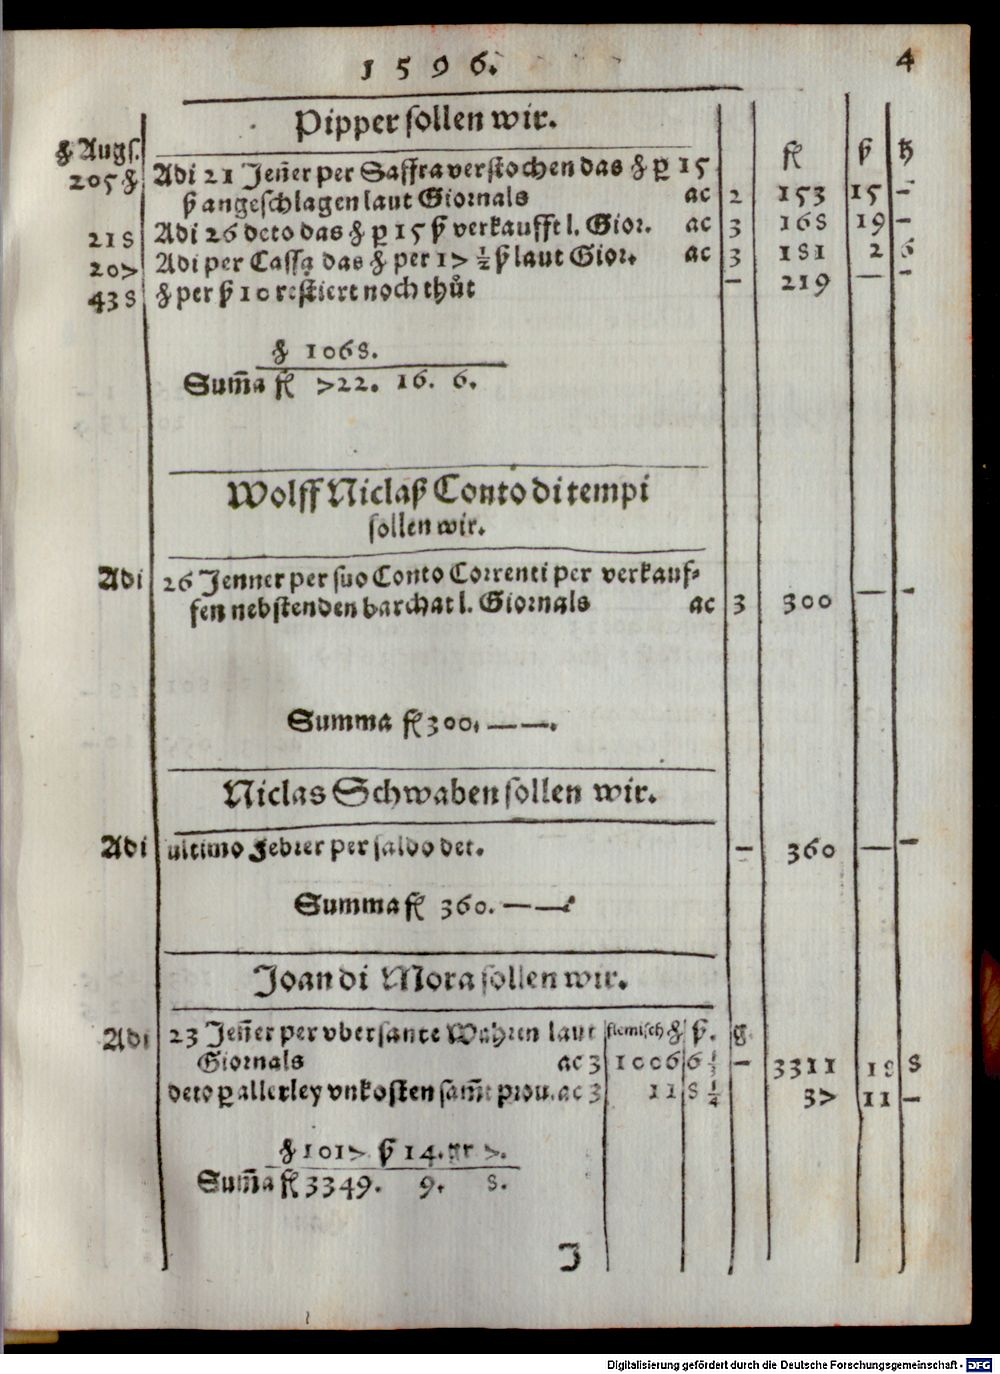 1 5 9 6. 4
Pipper sollen wir.
℔ Augs. fl ß ħ
205 ℔ Adi 21 Jen̄er per Saffra verstochen das ℔ ꝑ 15
ß angeschlagen laut Giornals ac 2 153 15 —
218 Adi 26 deto das ℔ ꝑ 15 ß verkaufft l. Gior. ac 3 168 19 —
207 Adi per Cassa das ℔ per 17 ½ ß laut Gior. ac 3 181 2 6
438 ℔ per ß 10 restiert noch thůt — 219 — —
℔ 1068.
Sum̄a fl 722. 16. 6.
Wolff Niclaß Conto di tempi
sollen wir.
Adi 26 Jenner per suo Conto Correnti per verkauf-
fen nebstenden barchat l. Giornals ac 3 300 — —
Summa fl 300. — —.
Niclas Schwaben sollen wir.
Adi ultimo Febrer per saldo det. — 360 — —
Summa fl 360. — —
Joan di Mora sollen wir.
Adi 23 Jen̄er per vbersante Wahren laut flemisch ℔ ß. g.
Giornals ac 3 1006 6 ⅓ — 3311 18 8
deto ꝑ allerley vnkosten sam̄t prou. ac 3 11 8 ¼ 37 11 —
℔ 1017 ß 14. gr 7.
Sum̄a fl 3349. 9. 8.
J
Digitalisierung gefördert durch die Deutsche Forschungsgemeinschaft - DFG